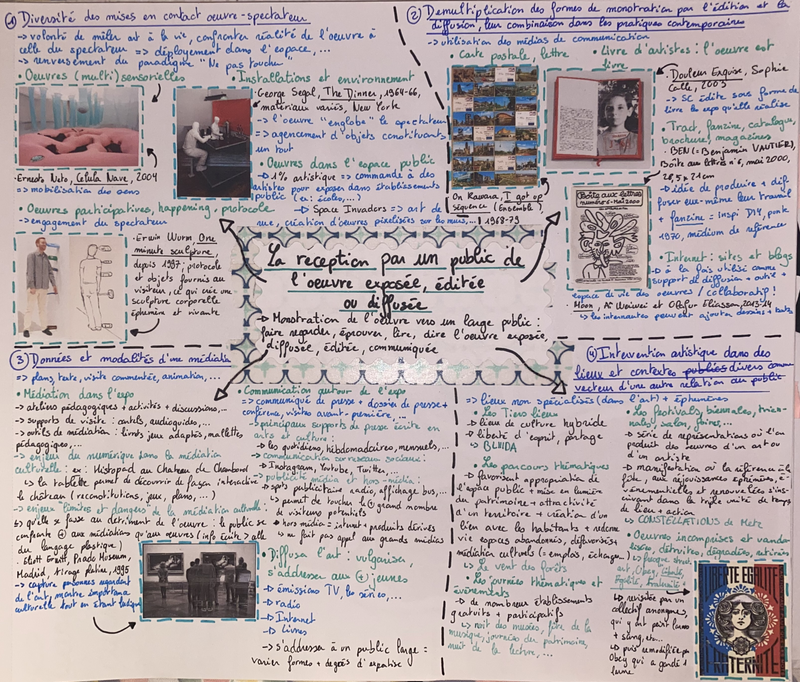 ① Diversité des mises en contact oeuvre-spectateur
-> volonté de mêler art à la vie, confronter réalité de l'oeuvre à
celle du spectateur => déploiement dans l'espace, ...
-> renversement du paradigme "Ne pas toucher"
• Oeuvres (multi)sensorielles
• Ernesto Neto, Celula Nave, 2004
=> mobilisation des sens
• Installations et environnement
• George Segal, The Dinner, 1964-66,
matériaux variés, New York
-> l'oeuvre "englobe" le spectateur
=> agencement d'objets constituants
un tout
• Oeuvres dans l'espace public
-> 1% artistique => commande à des
artistes pour exposer dans établissements
public (ex: écoles, ...)
-> Space Invaders => art de
rue, création d'oeuvres pixelisées sur les murs, ...
• Oeuvres participatives, happening, protocole
-> engagement du spectateur
• Erwin Wurm, One
minute sculpture,
depuis 1997, protocole
et objets fournis au
visiteur, ce qui crée une
sculpture corporelle
éphémère et vivante
② Démultiplication des formes de monstration par l'édition et la
diffusion, leur combinaison dans les pratiques contemporaines
-> utilisation des médias de communication
• Carte postale, lettre
On Kawara, I got up
séquence (Ensemble)
1968-79
• Livre d'artistes : l'oeuvre est
livre
• Douleur Exquise, Sophie
Calle, 2003
-> SC édite sous forme de
livre les expo qu'elle réalise
• Tract, fanzine, catalogue,
brochure, magazines
• BEN (=Benjamin VAUTIER),
Boîte aux lettres n°6, mai 2000,
29,5 x 21 cm
-> idée de produire et diffuser
eux-même leur travail
+ fanzine = inspi DIY, punk
1970, médium de référence
Boîte aux lettres
numéro 6 - Mai 2000
• Internet : sites et blogs
-> à la fois utilisé comme
support de diffusion + actif +
espace de vie des oeuvres / collaboratif !
Moon, Ai Weiwei et Olafur Eliasson, 2013-14
-> les internautes peuvent ajouter dessins + textes
La réception par un public de
l'oeuvre exposée, éditée
ou diffusée
-> Monstration de l'oeuvre vers un large public :
faire regarder, éprouver, lire, dire l'oeuvre exposée,
diffusée, éditée, communiquée
③ Données et modalités d'une médiation
-> plans, texte, visite commentée, animation, ...
• Médiation dans l'expo
-> ateliers pédagogiques + activités + discussions, ...
-> supports de visite : cartels, audioguides, ...
-> outils de médiation : livrets jeux adaptés, mallettes
pédagogiques, ...
-> enjeu du numérique dans la médiation
culturelle : ex : Histopad au Chateau de Chambord
-> la tablette permet de découvrir de façon interactive
le château (reconstitutions, jeux, plans, ...)
-> enjeux limites et dangers de la médiation culturelle :
-> qu'elle se fasse au détriment de l'oeuvre : le public se
confronte + aux médiations qu'aux oeuvres (info écrite > celle
du langage plastique)
• Eliott Erwitt, Prado Museum,
Madrid, tirage platine, 1995
-> capture personnes regardant
de l'art, montre importance
culturelle tout en étant ludique
• Communication autour de l'expo
=> communiqué de presse + dossier de presse +
conférence, visites avant-première, ...
-> principaux supports de presse écrite en
arts et culture :
-> les quotidiens, hebdomadaires, mensuels, ...
-> communication réseaux sociaux :
-> Instagram, Youtube, Twitter, ...
-> publicité média et hors-média :
-> spots publicitaire radio, affichage bus, ...
-> permet de toucher le + grand nombre
de visiteurs potentiels
-> hors média = internet + produits dérivés
-> ne font pas appel aux grands médias
• Diffuser l'art : vulgariser,
s'addresser aux + jeunes
-> émissions TV, les séries, ...
-> radio
-> Internet
-> Livres
-> s'addresser à un public large =
varier formes + degrés d'expertise
④ Intervention artistique dans des
lieux et contextes publics divers comme
vecteur d'une autre relation au public
=> lieux non spécialisés (dans l'art) + éphémères
• Les Tiers lieux
-> lieux de culture hybride
-> liberté d'esprit, partage
-> BLIIDA
• Les parcours thématiques
-> favorisent appropriation de
l'espace public + mise en lumière
du patrimoine + attractivité
d'un territoire + création d'un
lien avec les habitants + redonne
vie espaces abandonnés, défavorisés +
médiation culturelle (= emplois, échanges, ...)
-> Le vent des forêts
• Les journées thématiques et
évènements
-> de nombreux établissements
gratuits + participatifs
-> nuit des musées, fête de la
musique, journées du patrimoine,
nuit de la lecture, ...
• Les festivals, biennales, triennales,
salon, foires, ...
-> série de représentations où l'on
produit des oeuvres d'un art ou
d'un artiste
-> manifestation où la référence à la
fête, aux réjouissances éphémères, événementielles
et renouvelées s'inscrivent
dans la triple unité de temps
de lieu + action
-> CONSTELLATIONS de Metz
• Oeuvres incomprises et vandalisées,
détruites, dégradées, retirées
Liberté,
Egalité, Fraternité
-> revisitée par un
collectif anonyme
qui y ont peint larmes
+ sang, etc...
-> puis remodifiée par
Obey qui a gardé 1
larme
LIBERTE EGALITE
FRATERNITE